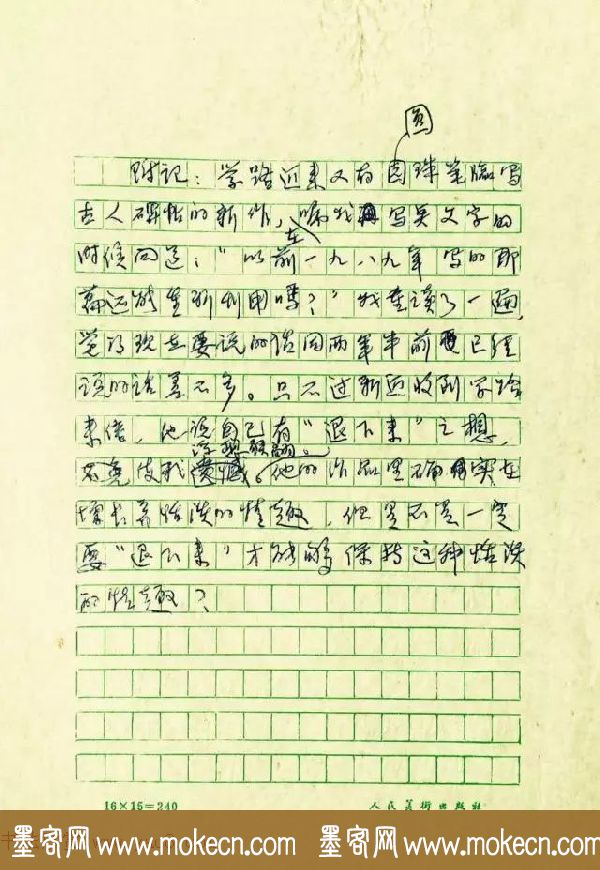 圆
附记：学路近来又有圆珠笔临写
古人碑帖的新作，嘱我写关文字的
在
时候问道：“以前一九八九年写的那
篇还能重新利用吗？”我重读了一遍，
觉得现在要说的话同两年半前已经
说的话差不多。只不过新近收到学路
来信，他说自己有“退下来”之想，
不免使我。他的作品里确实在
增长着恬淡的情趣，但是不是一定
要“退下来”才能够保持这种恬淡
的情趣？
16×15=240
人民美術出版社
墨客网 www.mokecn.com 墨客网 www.mokecn.com